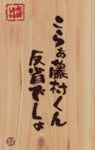 こらぁ藤村くん
反省でしょ